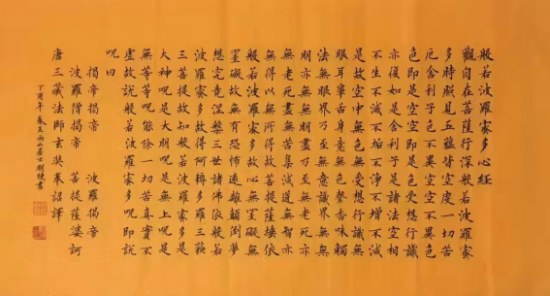 般若波羅蜜多心經
觀自在菩薩行深般若波羅蜜
多時照見五蘊皆空度一切苦
厄舍利子色不異空空不異色
色即是空空即是色受想行識
亦復如是舍利子是諸法空相
不生不滅不垢不淨不增不減
是故空中無色無受想行識無
眼耳鼻舌身意無色聲香味觸
法無眼界乃至無意識界無無
明亦無無明盡乃至無老死亦
無老死盡無苦集滅道無智亦
無得以無所得故菩提薩埵依
般若波羅蜜多故心無罣礙無
罣礙故無有恐怖遠離顛倒夢
想究竟涅槃三世諸佛依般若
波羅蜜多故得阿耨多羅三藐
三菩提故知般若波羅蜜多是
大神呪是大明呪是無上呪是
無等等呪能除一切苦真實不
虛故說般若波羅蜜多呪即說
呪曰
揭帝揭帝 波羅揭帝
波羅僧揭帝 菩提薩婆訶
唐三藏法師玄奘奉詔譯
丁酉年 居士 書